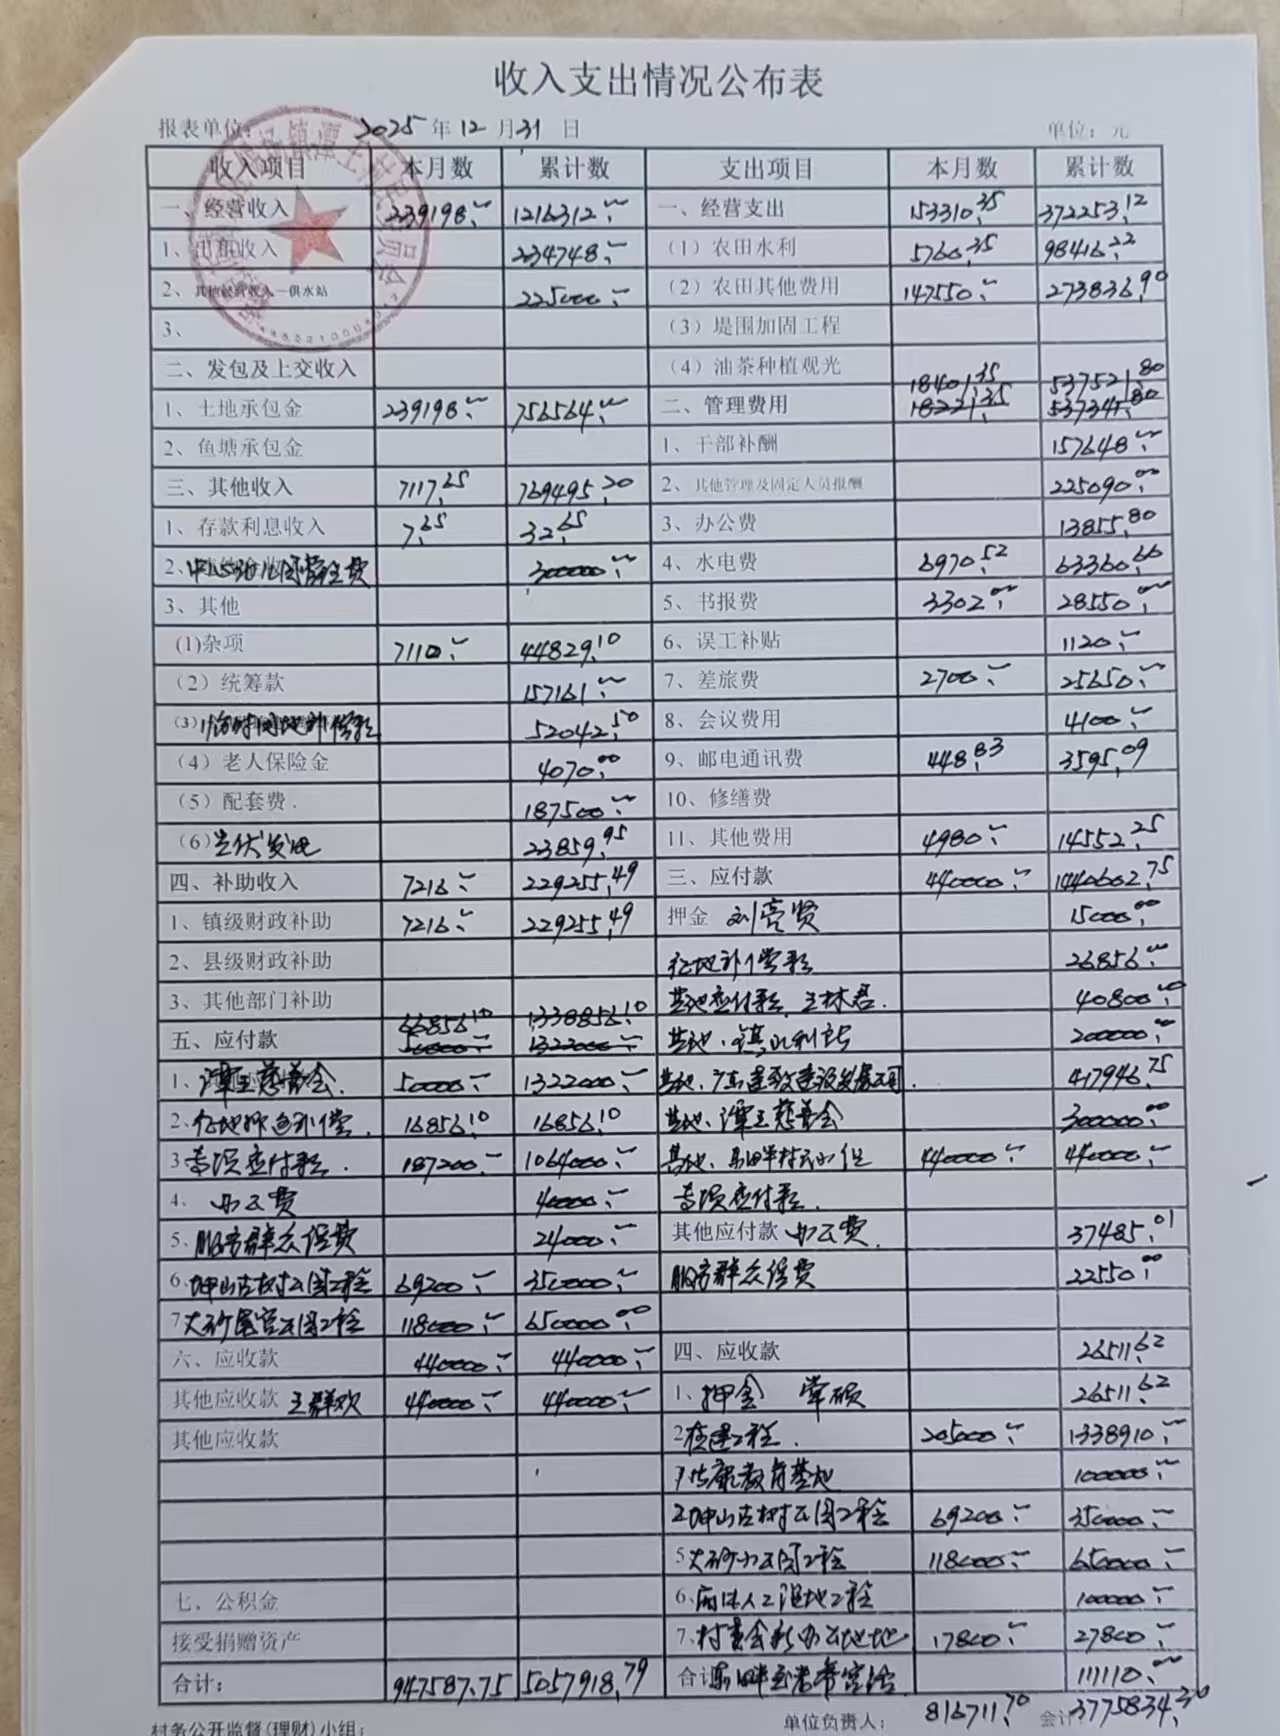 收入支出情况公布表
报表单位: 2025 年 12 月 31 日 单位: 元
收入项目 本月数 累计数 支出项目 本月数 累计数
一、经营收入 239198.- 1216312.- 一、经营支出 153310.35 372253.12
1、出租收入 234748.- (1)农田水利 5760.35 98416.22
2、其他经营收入—供水站 225000.- (2)农田其他费用 147550.- 273836.90
3、 (3)堤围加固工程
二、发包及上交收入 (4)油茶种植观光 18401.35 537521.80
1、土地承包金 239198.- 756564.- 二、管理费用 18221.35 537345.80
2、鱼塘承包金 1、干部补酬 157648.-
三、其他收入 7117.65 769495.20 2、其他管理及固定人员报酬 225090.00
1、存款利息收入 7.65 32.65 3、办公费 13855.80
2、 300000.- 4、水电费 6970.52 63360.66
3、其他 5、书报费 3302.- 28550.-
(1)杂项 7110.- 44829.10 6、误工补贴 1120.-
(2)统筹款 157161.- 7、差旅费 2700.- 25650.-
(3) 补偿款 52042.50 8、会议费用 4100.-
(4)老人保险金 4070.00 9、邮电通讯费 448.83 3595.09
(5)配套费. 187500.- 10、修缮费
(6)光伏发电 23859.95 11、其他费用 4980.- 14552.25
四、补助收入 7216.- 229255.49 三、应付款 440000.- 1440602.75
1、镇级财政补助 7216.- 229255.49 押金 刘亮贤 15000.00
2、县级财政补助 征地补偿款 26856.-
3、其他部门补助 66856.10 1338856.10 基地应付款 王林君. 40800.00
五、应付款 1322000.- 基地、镇水利所 200000.-
1、潭王慈善会. 50000.- 1322000.- 基地、 417946.75
2、征地 补偿. 16856.10 16856.10 基地、潭王慈善会 300000.00
3、专项应付款. 187200.- 1064000.- 基地、 440000.- 440000.-
4、办公费 40000.- 专项应付款.
5、服务群众经费 24000.- 其他应付款 办公费. 37485.01
6、坤山古树公园工程 69200.- 350000.- 服务群众经费 22550.00
7、 公园工程 118000.- 650000.00
六、应收款 440000.- 440000.- 四、应收款 26511.62
其他应收款 王群欢 440000.- 440000.- 1、押金 26511.62
其他应收款 2、 工程. 205000.- 1338910.-
教育基地 100000.-
坤山古树公园工程 69200.- 350000.-
5、 公园工程 118000.- 650000.-
6、 人工湿地工程 100000.-
七、公积金 7、村委会新办公地址 17800.- 27800.-
接受捐赠资产 111110.00
合计: 947587.75 5057918.79 合计
村务公开监督(理财)小组: 单位负责人: 816711.70 会计 3775834.30